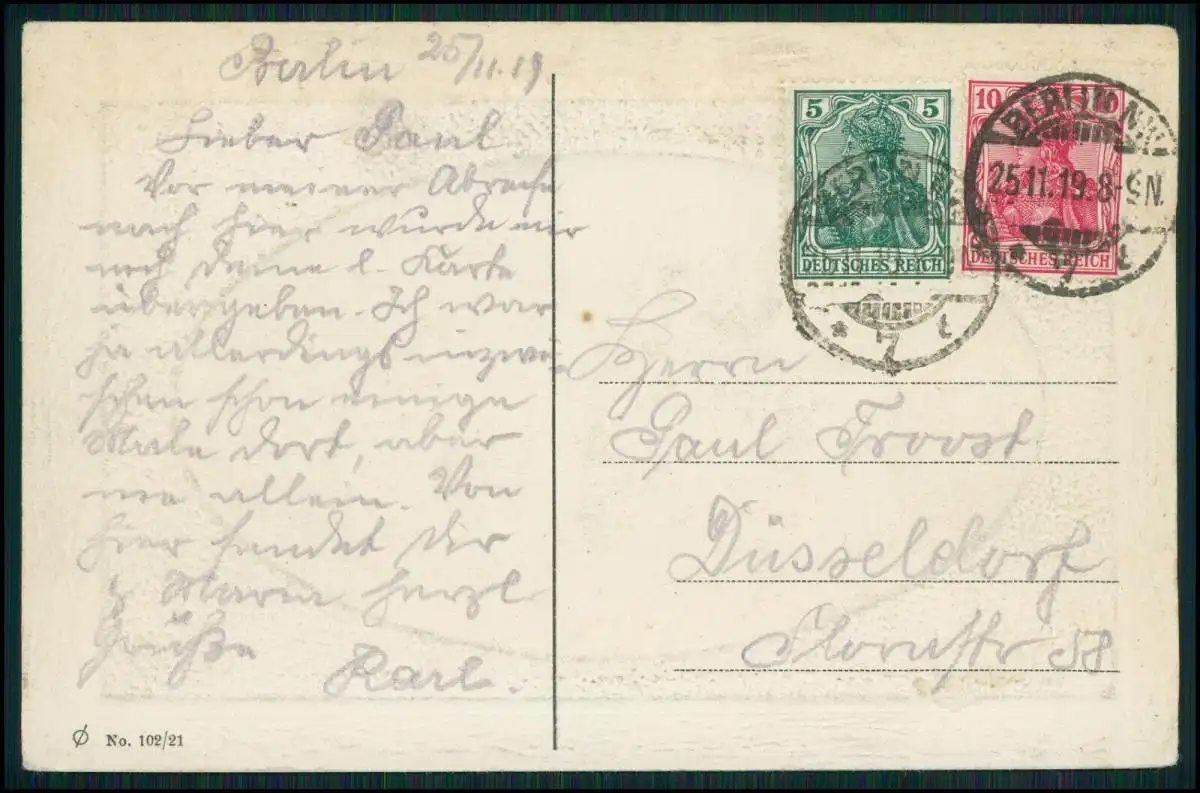 Berlin 25/11.19
Lieber Paul
Vor meiner Abreise
nach hier wurde mir
noch Deine l. Karte
übergeben. Ich war
ja allerdings inzwi-
schen schon einige
Male dort, aber
nie allein. Von
hier sendet Dir
Maria herzl
Grüße
Karl.
No. 102/21
5 5
DEUTSCHES REICH
10 10
DEUTSCHES REICH
BERLIN N.W.
25.11.19.8-9N.
* 7 t
BERLIN
* 7 t
Herrn
Paul Troost
Düsseldorf
58